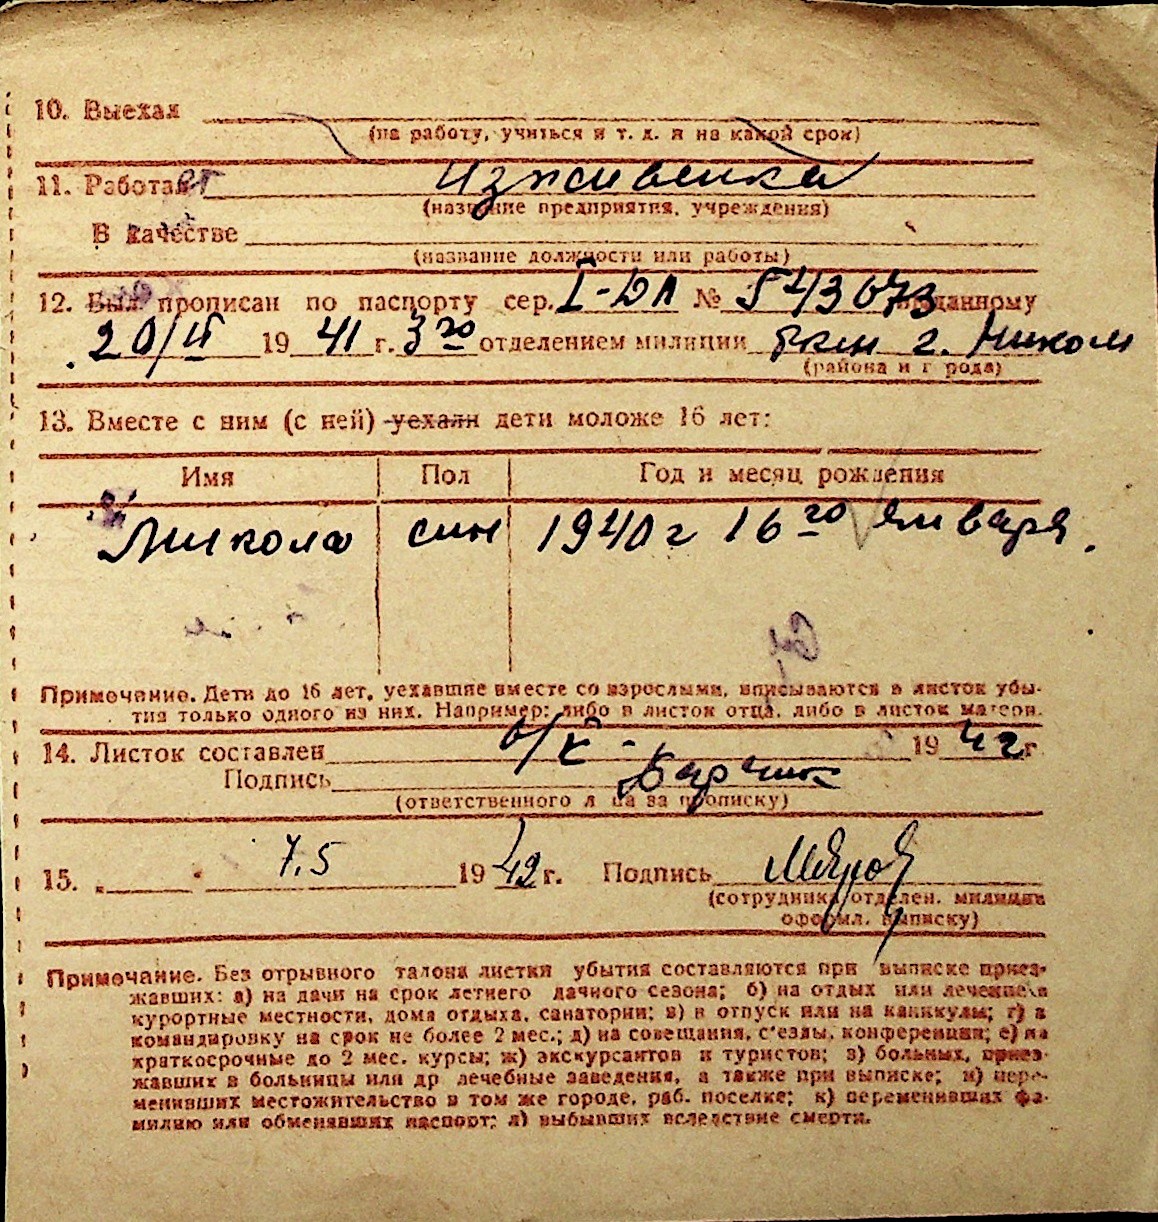 10. Выехал
(на работу, учиться и т. д. и на какой срок)
11. Работает иждивенка
(название предприятия, учреждения)
В качестве
(название должности или работы)
12. Был прописан по паспорту сер. I-ДЛ № 543673 выданному
20/II 1941 г. 3го отделением милиции г. Никол
(района и города)
13. Вместе с ним (с ней) уехали дети моложе 16 лет:
Имя Пол Год и месяц рождения
Микола син 1940 г 16го января.
Примечание. Дети до 16 лет, уехавшие вместе со взрослыми, вписываются в листок убы-
тия только одного из них. Например: либо в листок отца, либо в листок матери.
14. Листок составлен 6/V - 1942 г
Подпись
(ответственного лица за прописку)
15. 7.5 1942 г. Подпись
(сотрудника отделен. милиции
оформл. выписку)
Примечание. Без отрывного талона листки убытия составляются при выписке приез-
жавших: а) на дачи на срок летнего дачного сезона; б) на отдых или лечение в
курортные местности, дома отдыха, санатории; в) в отпуск или на каникулы; г) в
командировку на срок не более 2 мес.; д) на совещания, с'езды, конференции; е) на
краткосрочные до 2 мес. курсы; ж) экскурсантов и туристов; з) больных, приез-
жавших в больницы или др лечебные заведения, а также при выписке; и) пере-
менивших местожительство в том же городе, раб. поселке; к) переменивших фа-
милию или обменявших паспорт; л) выбывших вследствие смерти.